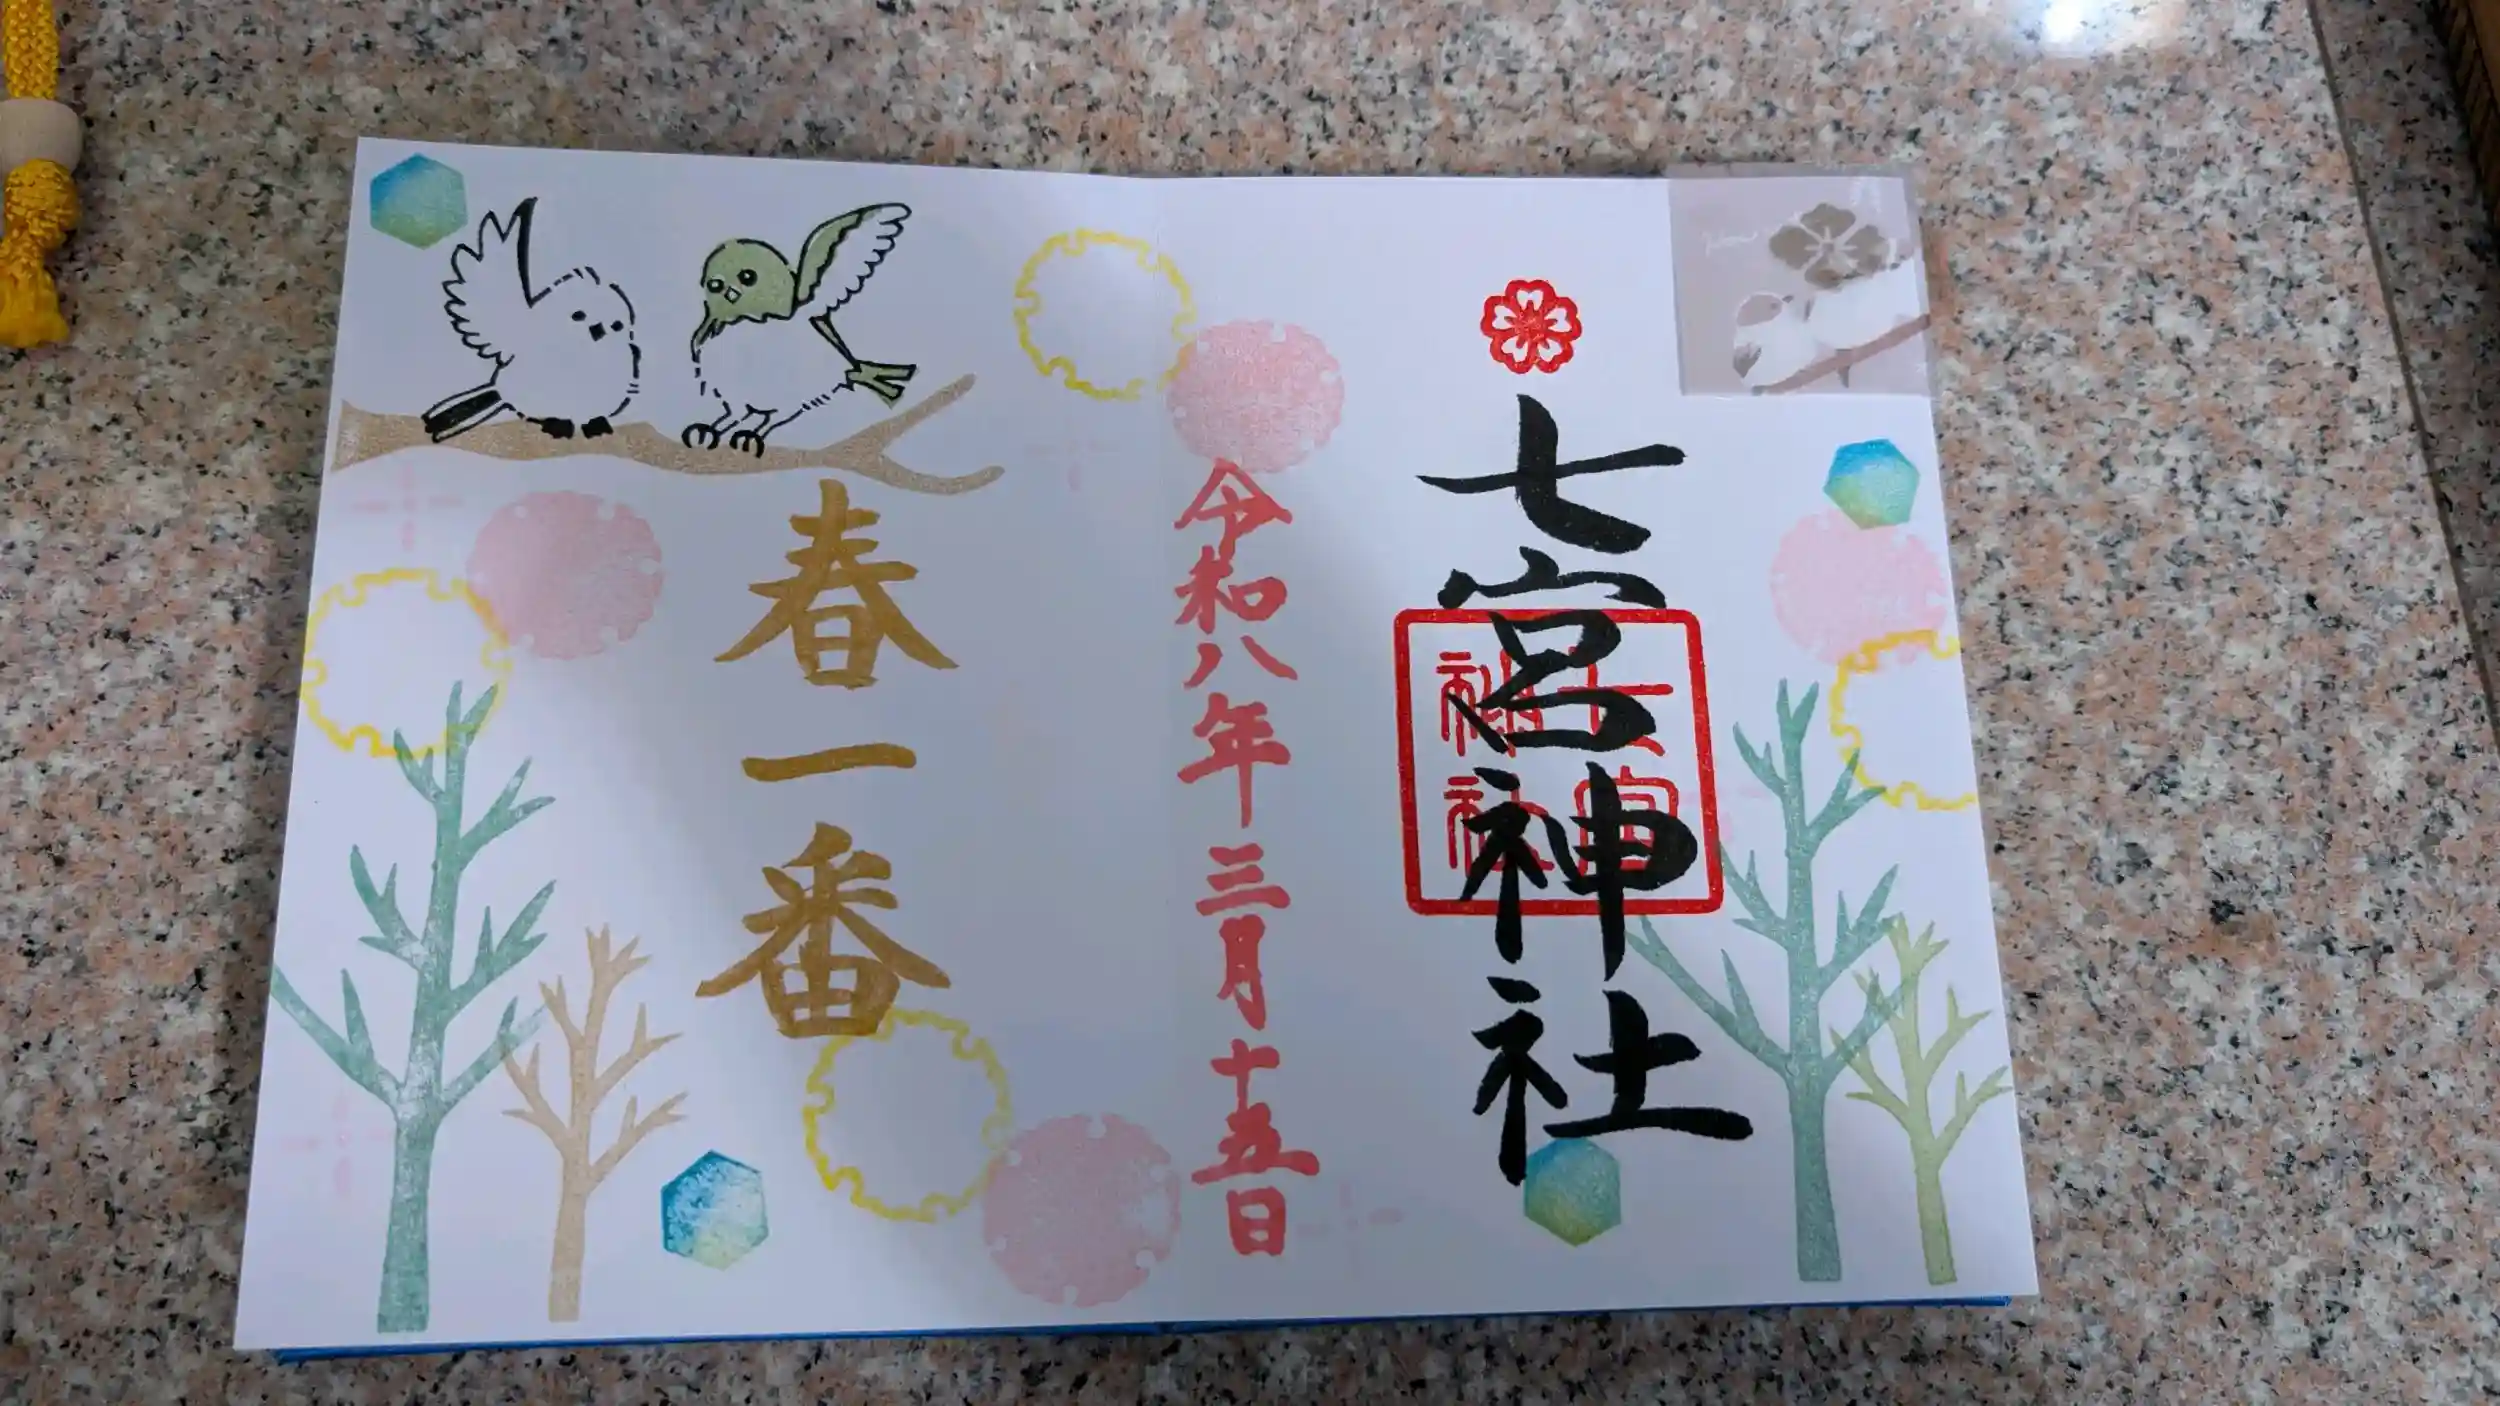 七宮神社
七宮
神社
令和八年三月十五日
春一番